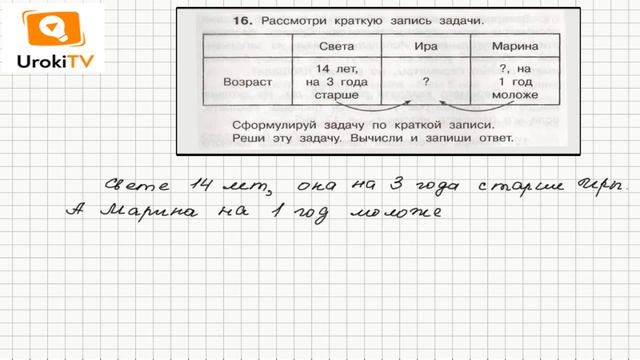 UrokiTV
16. Рассмотри краткую запись задачи.
Света Ира Марина
14 лет, ?, на
Возраст на 3 года ? 1 год
старше моложе
Сформулируй задачу по краткой записи.
Реши эту задачу. Вычисли и запиши ответ.
Свете 14 лет, она на 3 года старше Иры.
А Марина на 1 год моложе